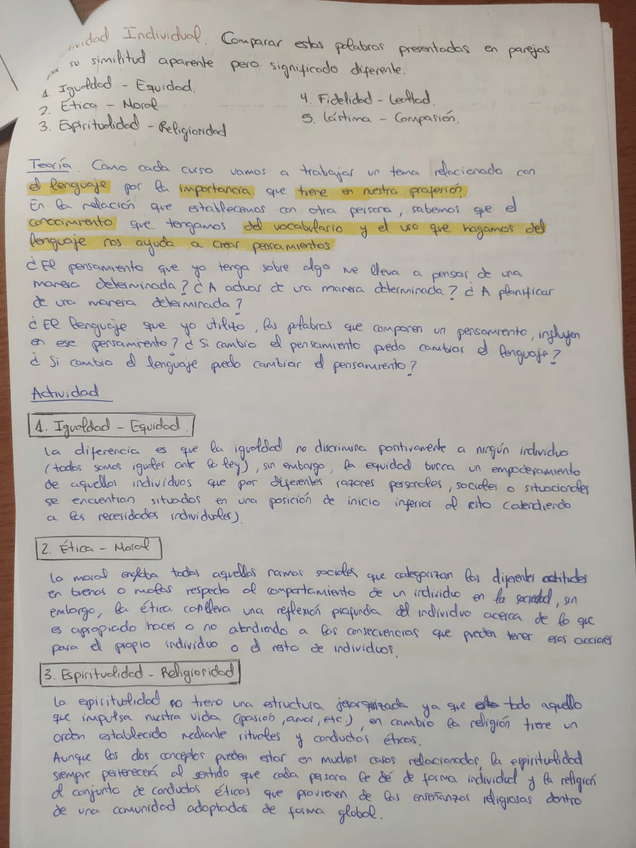 ividad Individual. Comparar estas palabras presentadas en parejas
por su similitud aparente pero significado diferente.
1. Igualdad - Equidad.
2. Ética - Moral
3. Espiritualidad - Religiosidad
4. Fidelidad - Lealtad.
5. Lástima - Compasión.
Teoría. Como cada curso vamos a trabajar un tema relacionado con
el lenguaje por la importancia que tiene en nuestra profesión.
En la relación que establecemos con otra persona, sabemos que el
conocimiento que tengamos del vocabulario y el uso que hagamos del
lenguaje nos ayuda a crear pensamientos
¿El pensamiento que yo tenga sobre algo me lleva a pensar de una
manera determinada? ¿A actuar de una manera determinada? ¿A planificar
de una manera determinada?
¿El lenguaje que yo utilizo, las palabras que componen un pensamiento, influyen
en ese pensamiento? ¿Si cambio el pensamiento puedo cambiar el lenguaje?
¿Si cambio el lenguaje puedo cambiar el pensamiento?
Actividad
1. Igualdad - Equidad.
La diferencia es que la igualdad no discrimina positivamente a ningún individuo
(todos somos iguales ante la ley), sin embargo, la equidad busca un empoderamiento
de aquellos individuos que por diferentes razones personales, sociales o situacionales
se encuentran situados en una posición de inicio inferior al resto (atendiendo
a las necesidades individuales).
2. Ética - Moral
La moral engloba todas aquellas normas sociales que categorizan las diferentes actitudes
en buenas o malas respecto al comportamiento de un individuo en la sociedad, sin
embargo, la ética conlleva una reflexión profunda del individuo acerca de lo que
es apropiado hacer o no atendiendo a las consecuencias que pueden tener esas acciones
para el propio individuo o el resto de individuos.
3. Espiritualidad - Religiosidad
La espiritualidad no tiene una estructura jerarquizada ya que es todo aquello
que impulsa nuestra vida (pasión, amor, etc.), en cambio la religión tiene un
orden establecido mediante rituales y conductas éticas.
Aunque los dos conceptos pueden estar en muchos casos relacionados, la espiritualidad
siempre pertenecerá al sentido que cada persona le dé de forma individual y la religión
al conjunto de conductas éticas que provienen de las enseñanzas religiosas dentro
de una comunidad adoptadas de forma global.